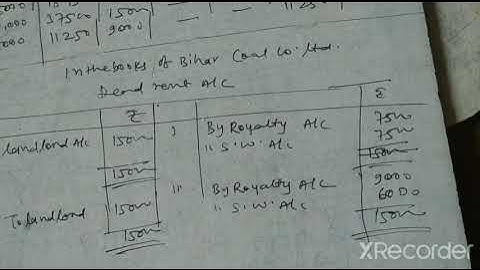 37500 | 1500
,000 | 11250 | 9000 | — | — | 11250
In the books of Bihar Coal Co. Ltd.
Dead rent A/c
₹ ₹
landlord A/c 1500 I By Royalty A/c 750
" S.W. A/c 750
1500 1500
To landlord 1500 II By Royalty A/c 9000
" S.W. A/c 6000
1500 1500
XRecorder